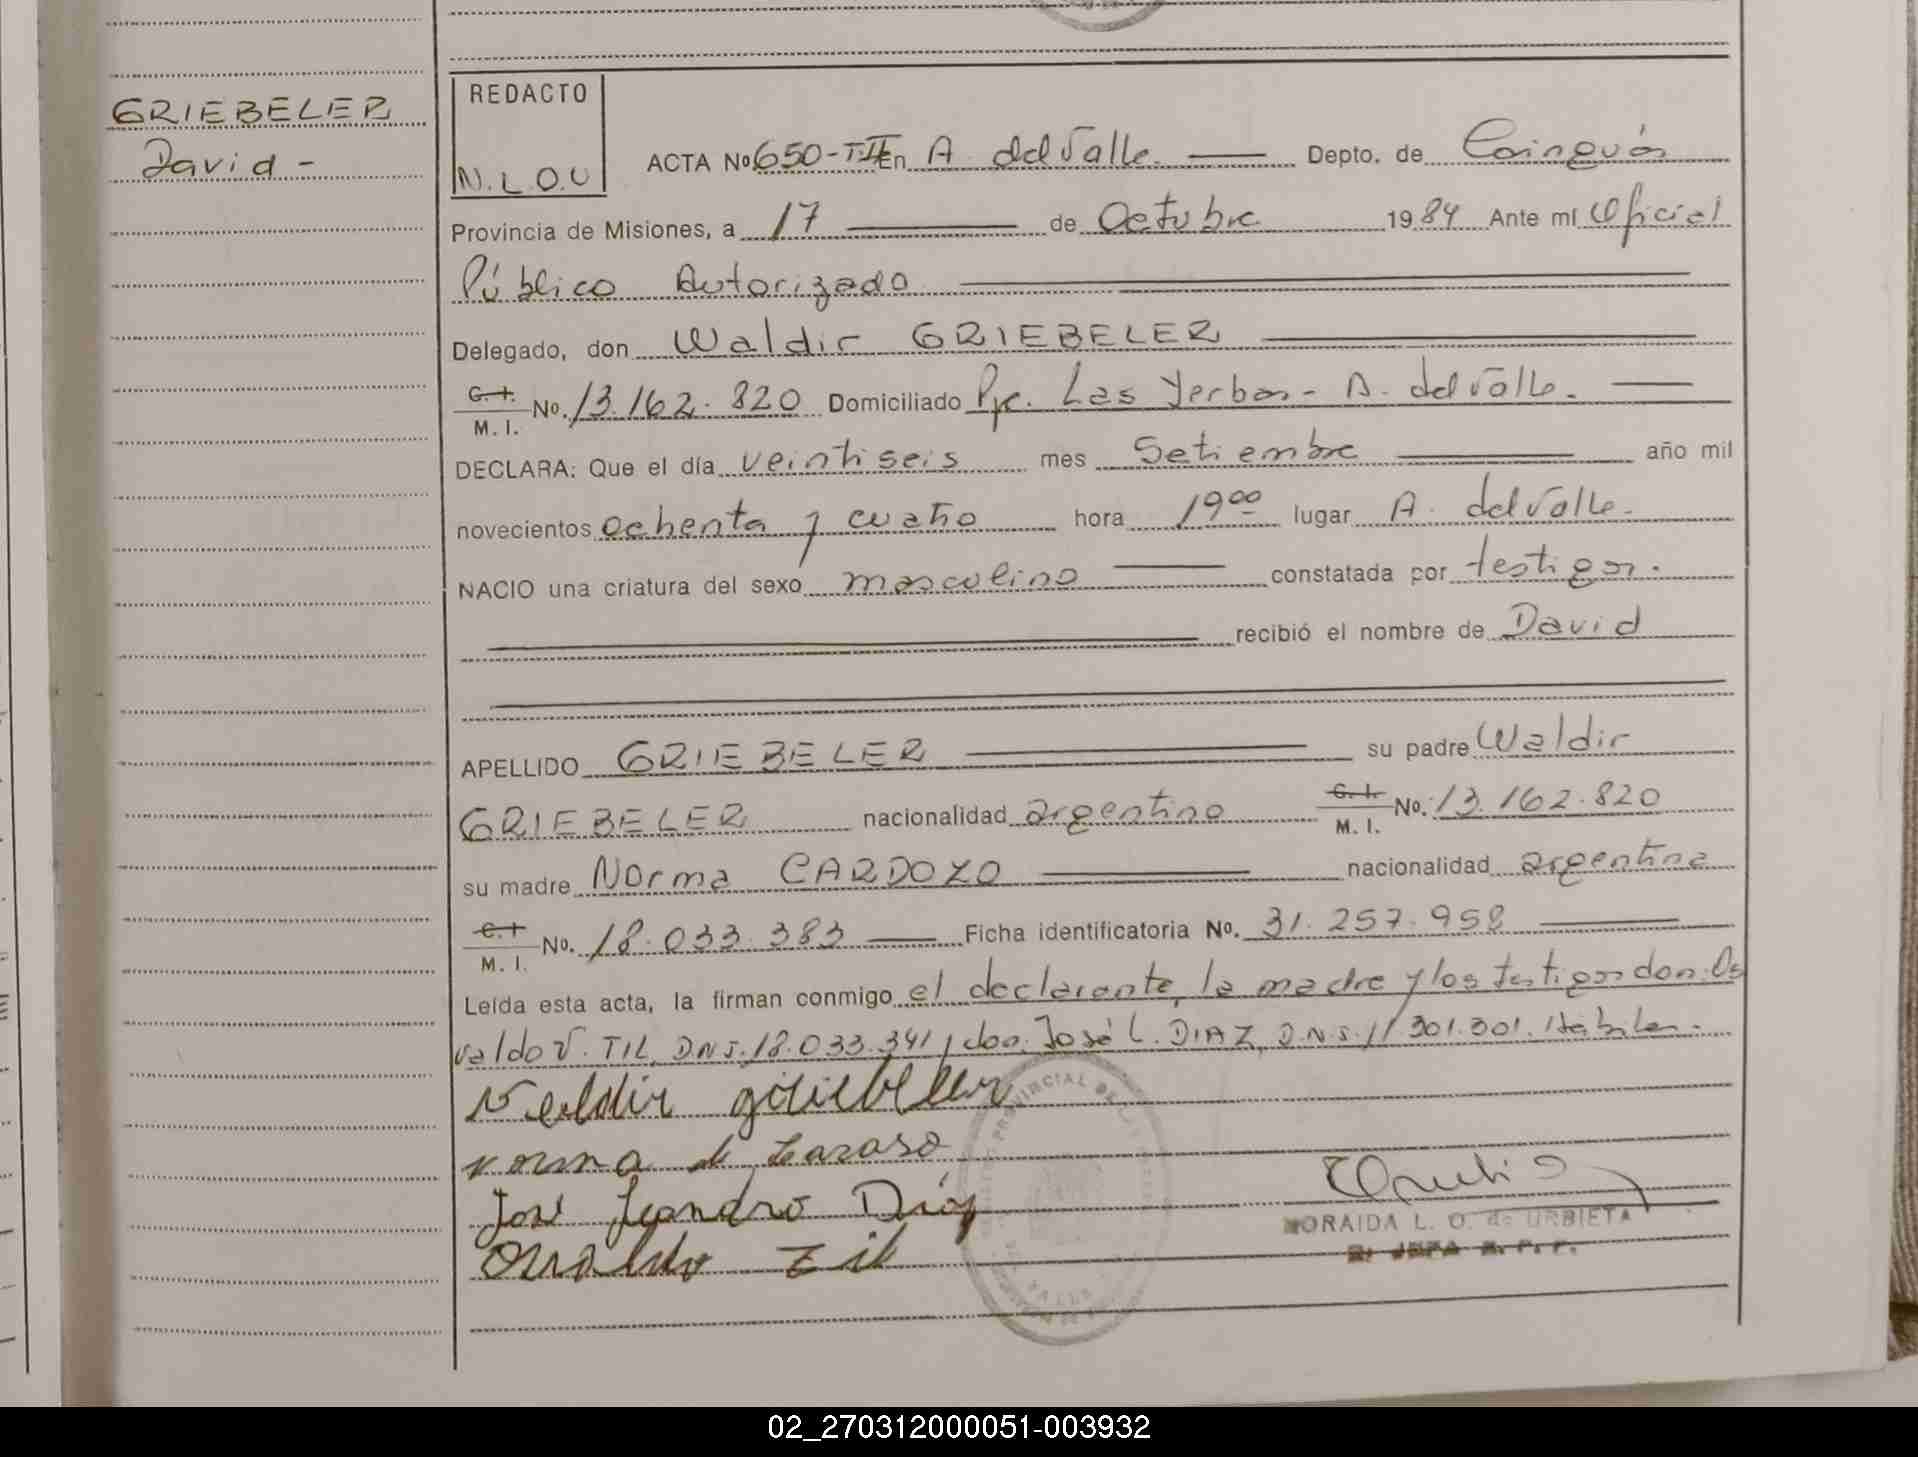 GRIEBELER
David -
REDACTO
N.L.O.U
ACTA Nº 650-T.II En A. del Valle. Depto. de Cainguás
Provincia de Misiones, a 17 de Octubre 1984 Ante mí Oficial
Público Autorizado
Delegado, don Waldir GRIEBELER
C.I. M.I. No. 13.162.820 Domiciliado Pje. Las Yerbas - A. del Valle.
DECLARA: Que el día veintiseis mes Setiembre año mil
novecientos ochenta y cuatro hora 19⁰⁰ lugar A. del Valle.
NACIO una criatura del sexo masculino constatada por testigos.
recibió el nombre de David
APELLIDO GRIEBELER su padre Waldir
GRIEBELER nacionalidad argentino C.I. M.I. No. 13.162.820
su madre Norma CARDOZO nacionalidad argentina
C.I M.I. No. 18.033.383 Ficha identificatoria No. 31.257.958
Leída esta acta, la firman conmigo el declarante, la madre y los testigos don: Os
valdo V. TIL, D.N.I. 18.033.341 y don José L. DIAZ, D.N.I. 11.301.301. Hábiles.
Waldir griebeler
norma de
José Leandro Díaz
Osvaldo Til
NORAIDA L. O. de URBIETA
02_270312000051-003932